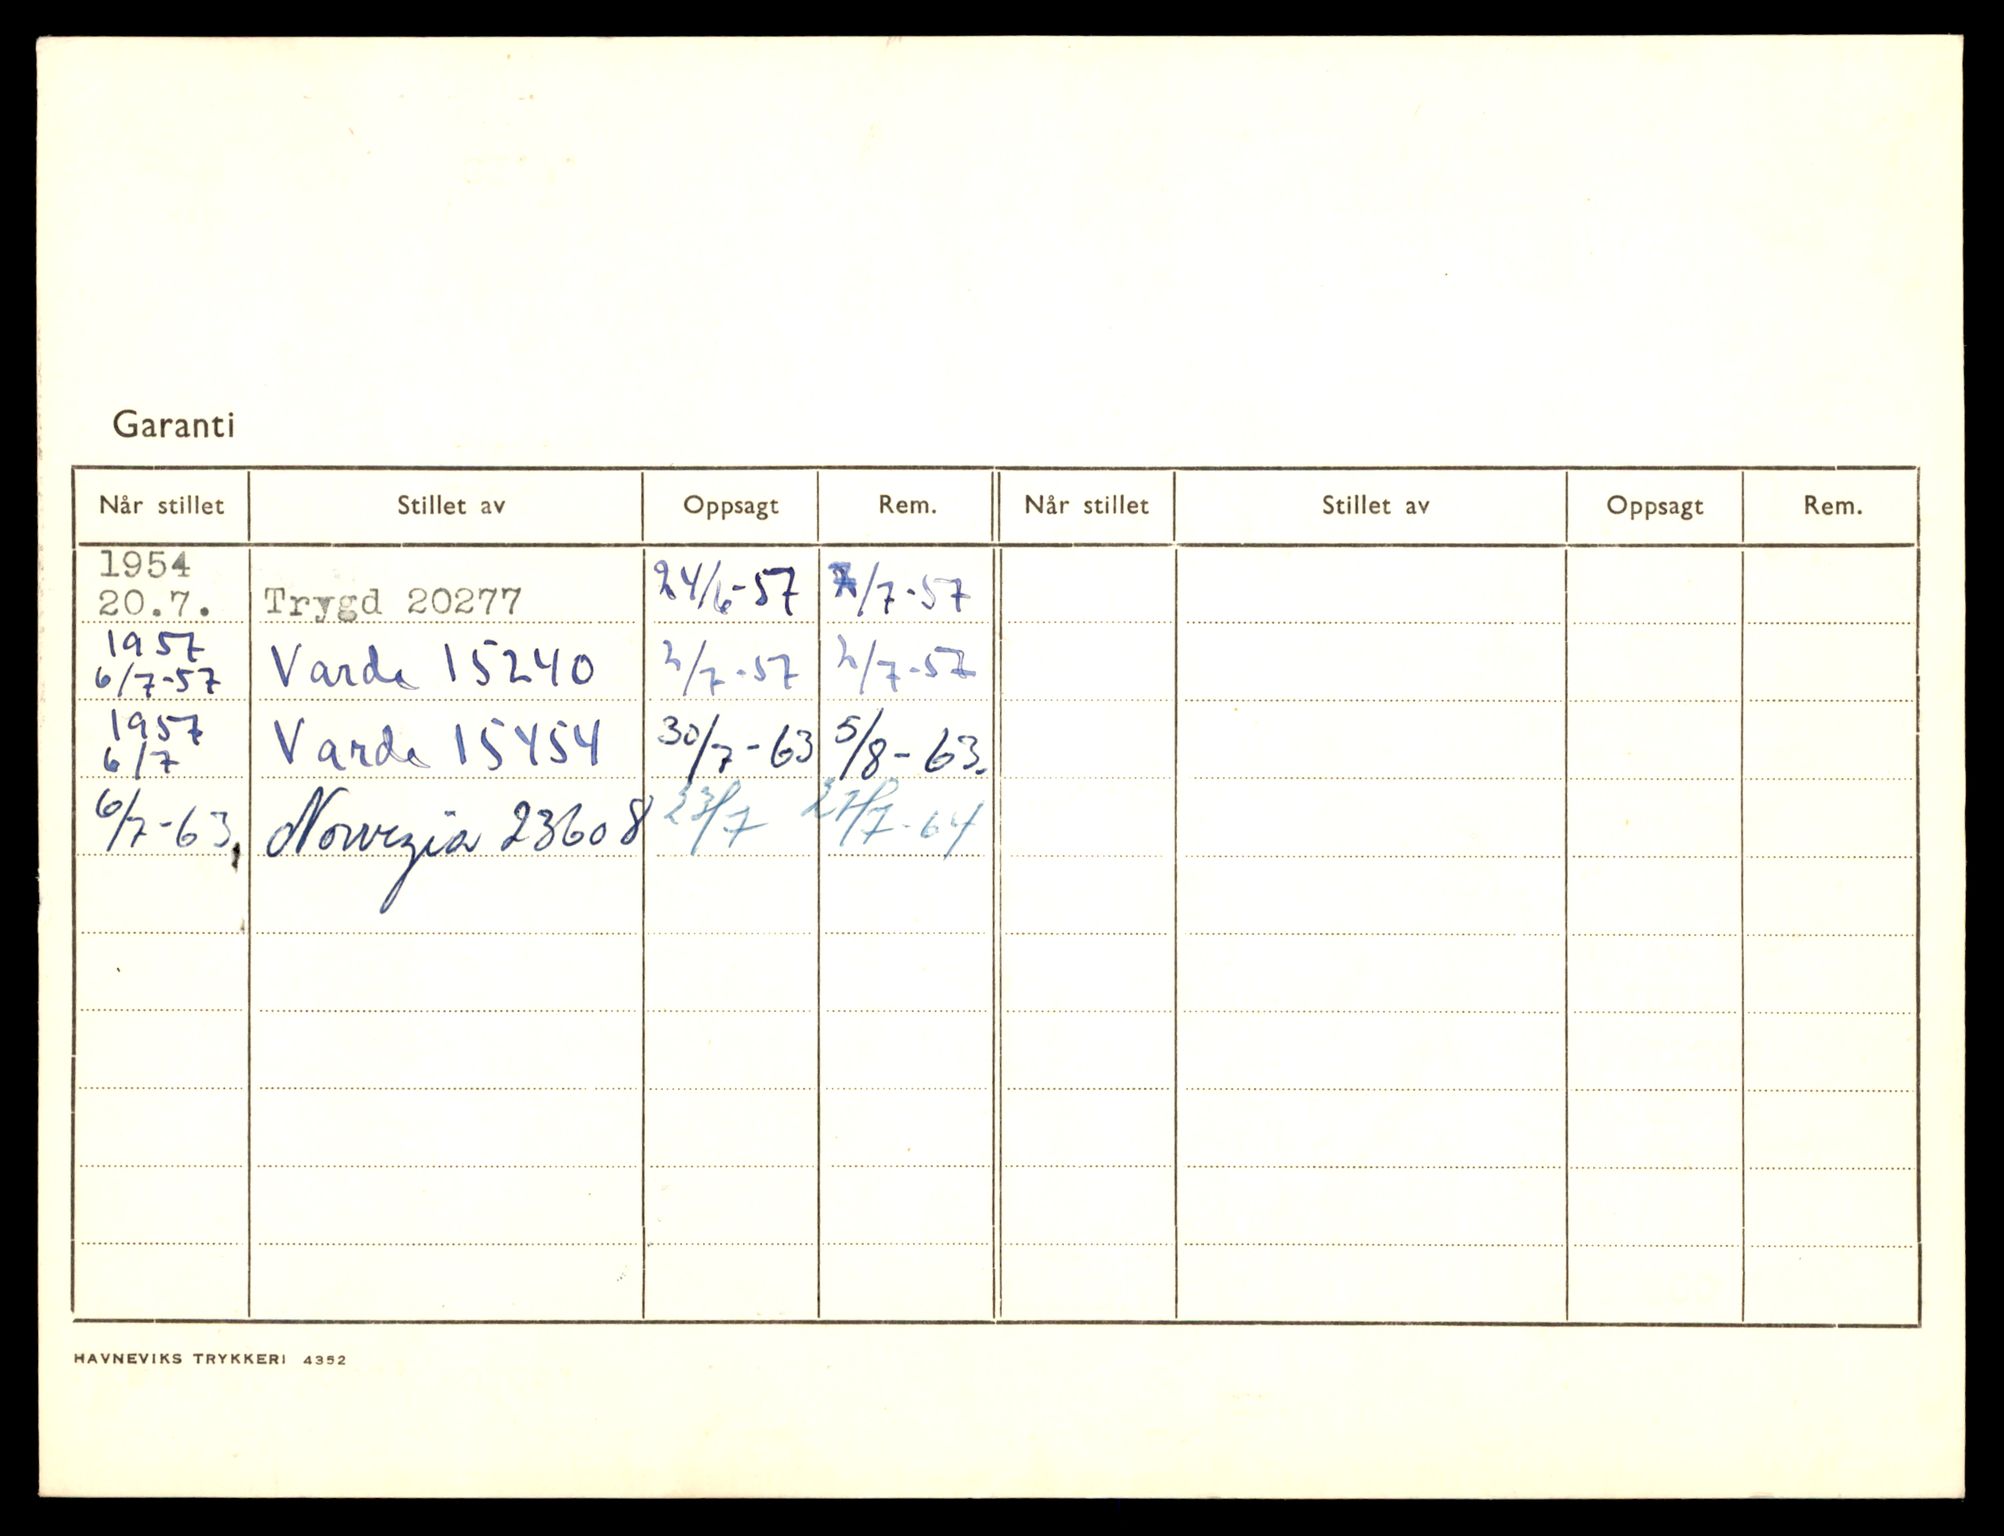 Garanti
Når stillet Stillet av Oppsagt Rem. Når stillet Stillet av Oppsagt Rem.
1954
20.7. Trygd 20277 24/6-57 /7-57
1957
6/7-57 Varde 15240 2/7-57 2/7-57
1957
6/7 Varde 15454 30/7-63 5/8-63.
6/7-63, Norvegia 23608 23/7 27/7-64
HAVNEVIKS TRYKKERI 4352